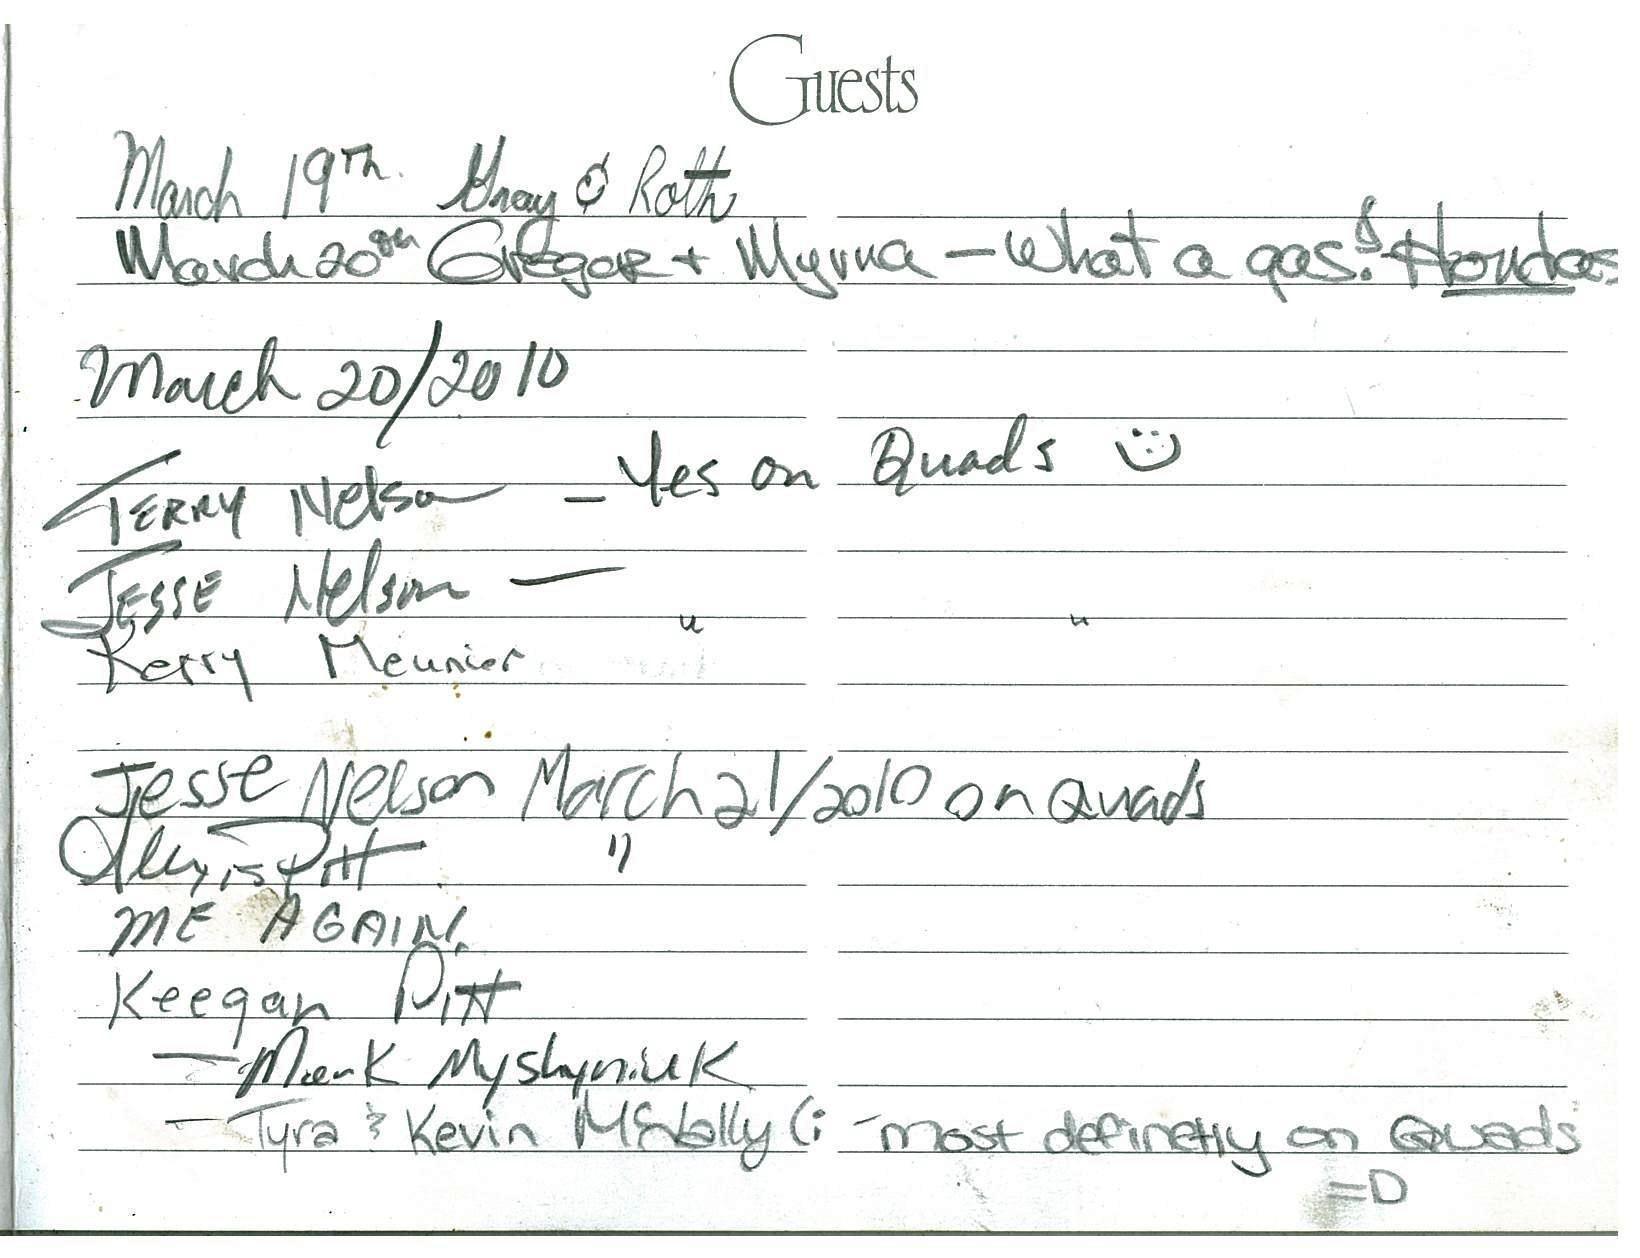 Guests
March 19Th. Gray & Roth
March 20th Gregor + Myrna - What a gas! Hondas
March 20/2010
TERRY Nelson - Yes on Quads :)
JESSE Nelson — " "
Kerry Meunier
Jesse Nelson March 21/2010 on Quads
Alexis Pitt "
ME AGAIN.
Keegan Pitt
- Mark Myshyniuk
- Tyra & Kevin McNally (: - most definetly on Quads
=D